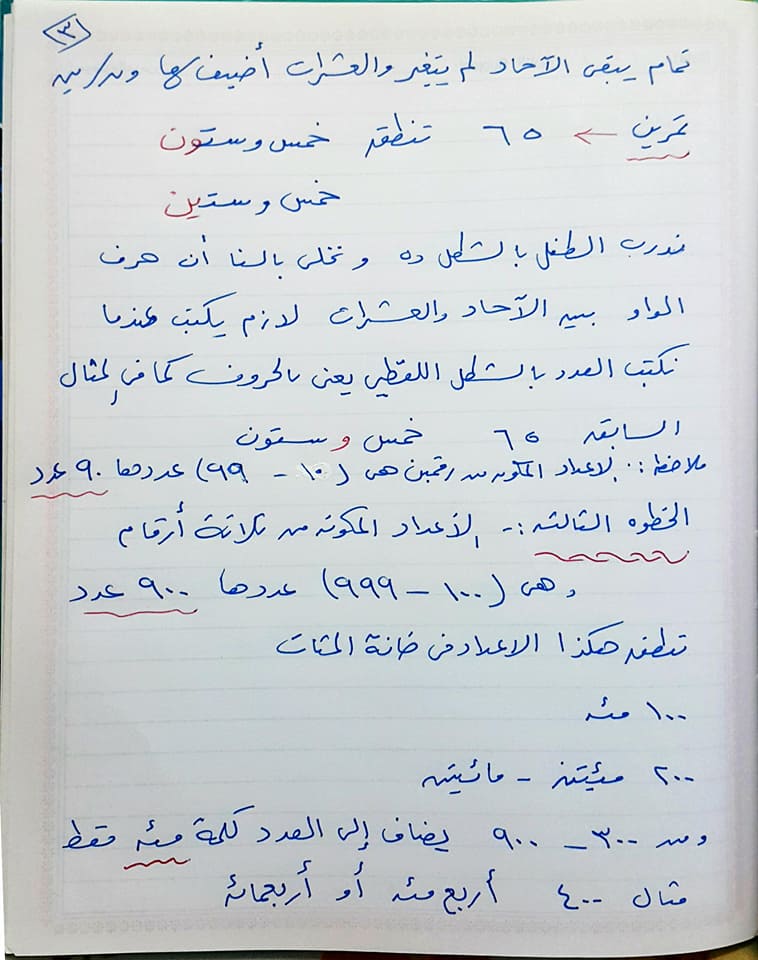 ٣
تمام يبقى الآحاد لم يتغير والعشرات أضيف لها ون/ين
تمرين ← ٦٥ تنطق خمس وستون
خمس وستين
ندرب الطفل بالشكل ده و نخلى بالنا أن حرف
الواو بين الآحاد والعشرات لازم يكتب عندما
نكتب العدد بالشكل اللفظي يعنى بالحروف كما فى المثال
السابق ٦٥ خمس وستون
ملاحظة :. الاعداد المكونه من رقمين هى (١٠ - ٩٩) عددها ٩٠ عدد
الخطوه الثالثه :- الأعداد المكونه من ثلاثة أرقام
وهى (١٠٠ - ٩٩٩) عددها ٩٠٠ عدد
تنطق هكذا الاعداد فى خانة المئات
١٠٠ مئه
٢٠٠ مئيتن - مائيتن
ومن ٣٠٠ - ٩٠٠ يضاف إلى العدد كلمة مئه فقط
مثال ٤٠٠ أربع مئه أو أربعمائه